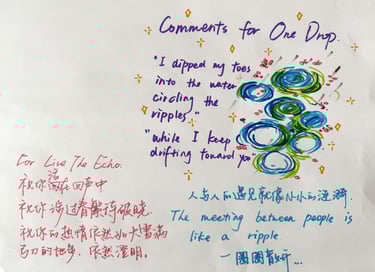 Comments for One Drop.
"I dipped my toes
into the water
circling the
ripples."
"while I keep
drifting toward you
For Live The Echo:
祝你活在回声中
祝你涉过着繁待破晓.
祝你的热情依然如大雪满
弓刀的地方,依然澄明。
人与人的遇见就像小小的涟漪.
The meeting between people is
like a ripple.
一圈圈